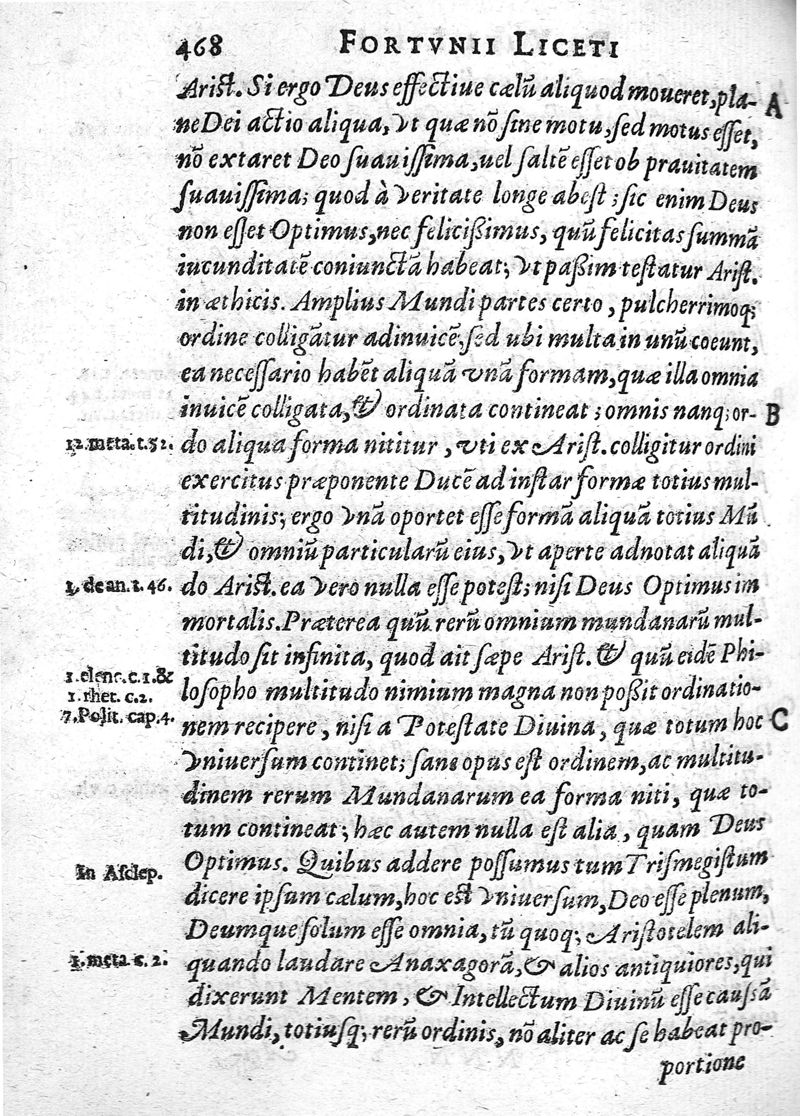 468 FORTVNII LICETI
Arist. Si ergo Deus effectiue cælũ aliquod moueret, pla- A
ne Dei actio aliqua, vt quæ nõ sine motu, sed motus esset,
nõ extaret Deo suauissima, uel saltẽ esset ob prauitatem
suauissima; quod à veritate longe abest; sic enim Deus
non esset Optimus, nec felicißimus, quũ felicitas summã
iucunditatẽ coniunctã habeat; vt paßim testatur Arist.
in æthicis. Amplius Mundi partes certo, pulcherrimoq;
ordine colligãtur adinuicẽ; sed ubi multa in unũ coeunt,
ea necessario habẽt aliquã vnã formam, quæ illa omnia
inuicẽ colligata, & ordinata contineat; omnis nanq; or- B
12. meta. t. 52. do aliqua forma nititur, vti ex Arist. colligitur ordini
exercitus præponente Ducẽ ad instar formæ totius mul-
titudinis; ergo vnã oportet esse formã aliquã totius Mũ
di, & omniũ particularũ eius, vt aperte adnotat aliquã
1. de an. t. 46. do Arist. ea vero nulla esse potest; nisi Deus Optimus im
mortalis. Præterea quũ rerũ omnium mundanarũ mul-
titudo sit infinita, quod ait sæpe Arist. & quũ eidẽ Phi-
1. elenc. c. 1. &
1. rhet. c. 2. losopho multitudo nimium magna non poßit ordinatio-
7. Polit. cap. 4. nem recipere, nisi a Potestate Diuina, quæ totum hoc C
vniuersum continet; sane opus est ordinem, ac multitu-
dinem rerum Mundanarum ea forma niti, quæ to-
tum contineat; hæc autem nulla est alia, quam Deus
In Asclep. Optimus. Quibus addere possumus tum Trismegistum
dicere ipsum cælum, hoc est vniuersum, Deo esse plenum,
Deumque solum esse omnia, tũ quoq; Aristotelem ali-
1. meta c. 2. quando laudare Anaxagorã, & alios antiquiores, qui
dixerunt Mentem, & Intellectum Diuinũ esse caussã
Mundi, totiusq; rerũ ordinis, nõ aliter ac se habeat pro-
portione